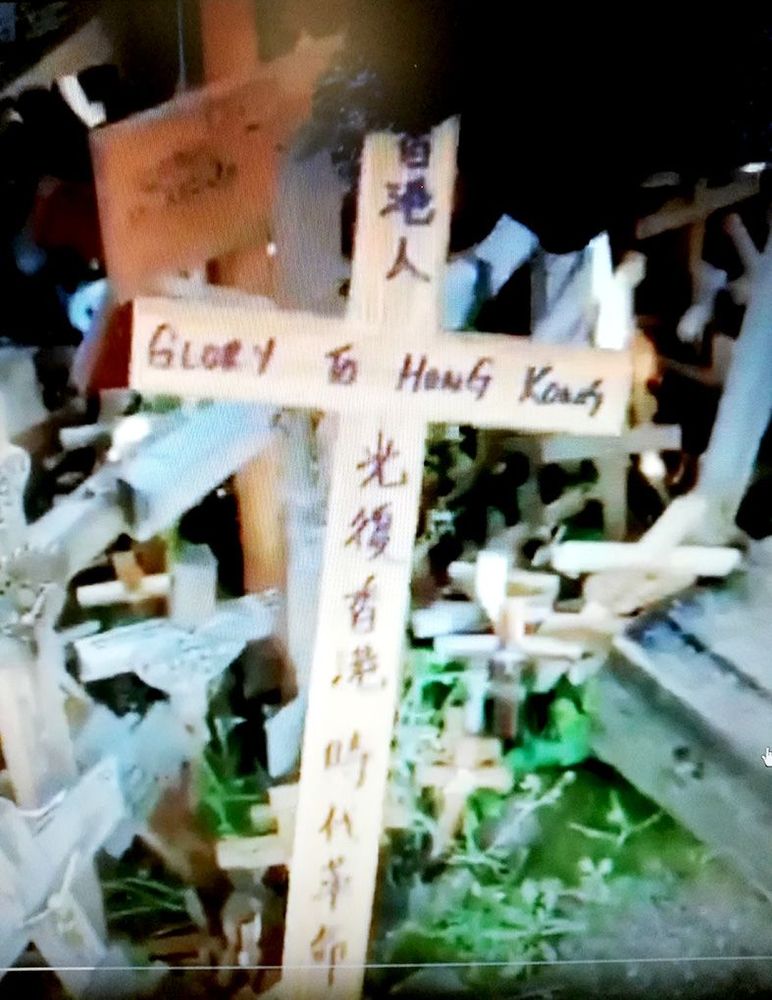 香港人
GLORY to HONG KONG
光復香港
時代革命